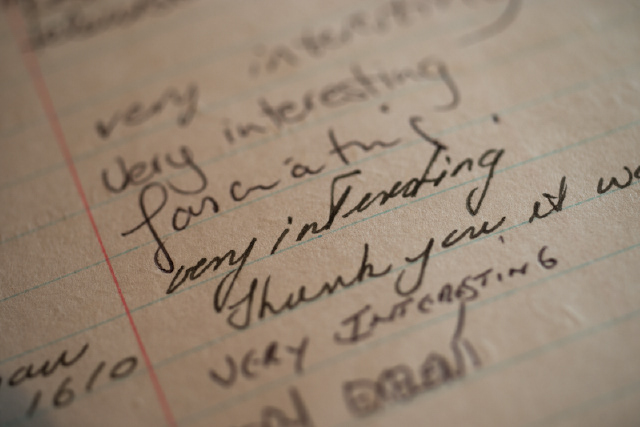 very interesting
very interesting
fascinating
very interesting
Thank you it wa
VERY INTERESTING
1610